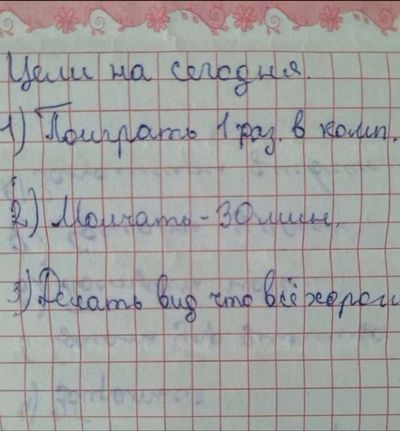 Цели на сегодня.
1) Поиграть 1 раз. в комп.
2) Молчать - 30 мин.
3) Делать вид что всё хорош